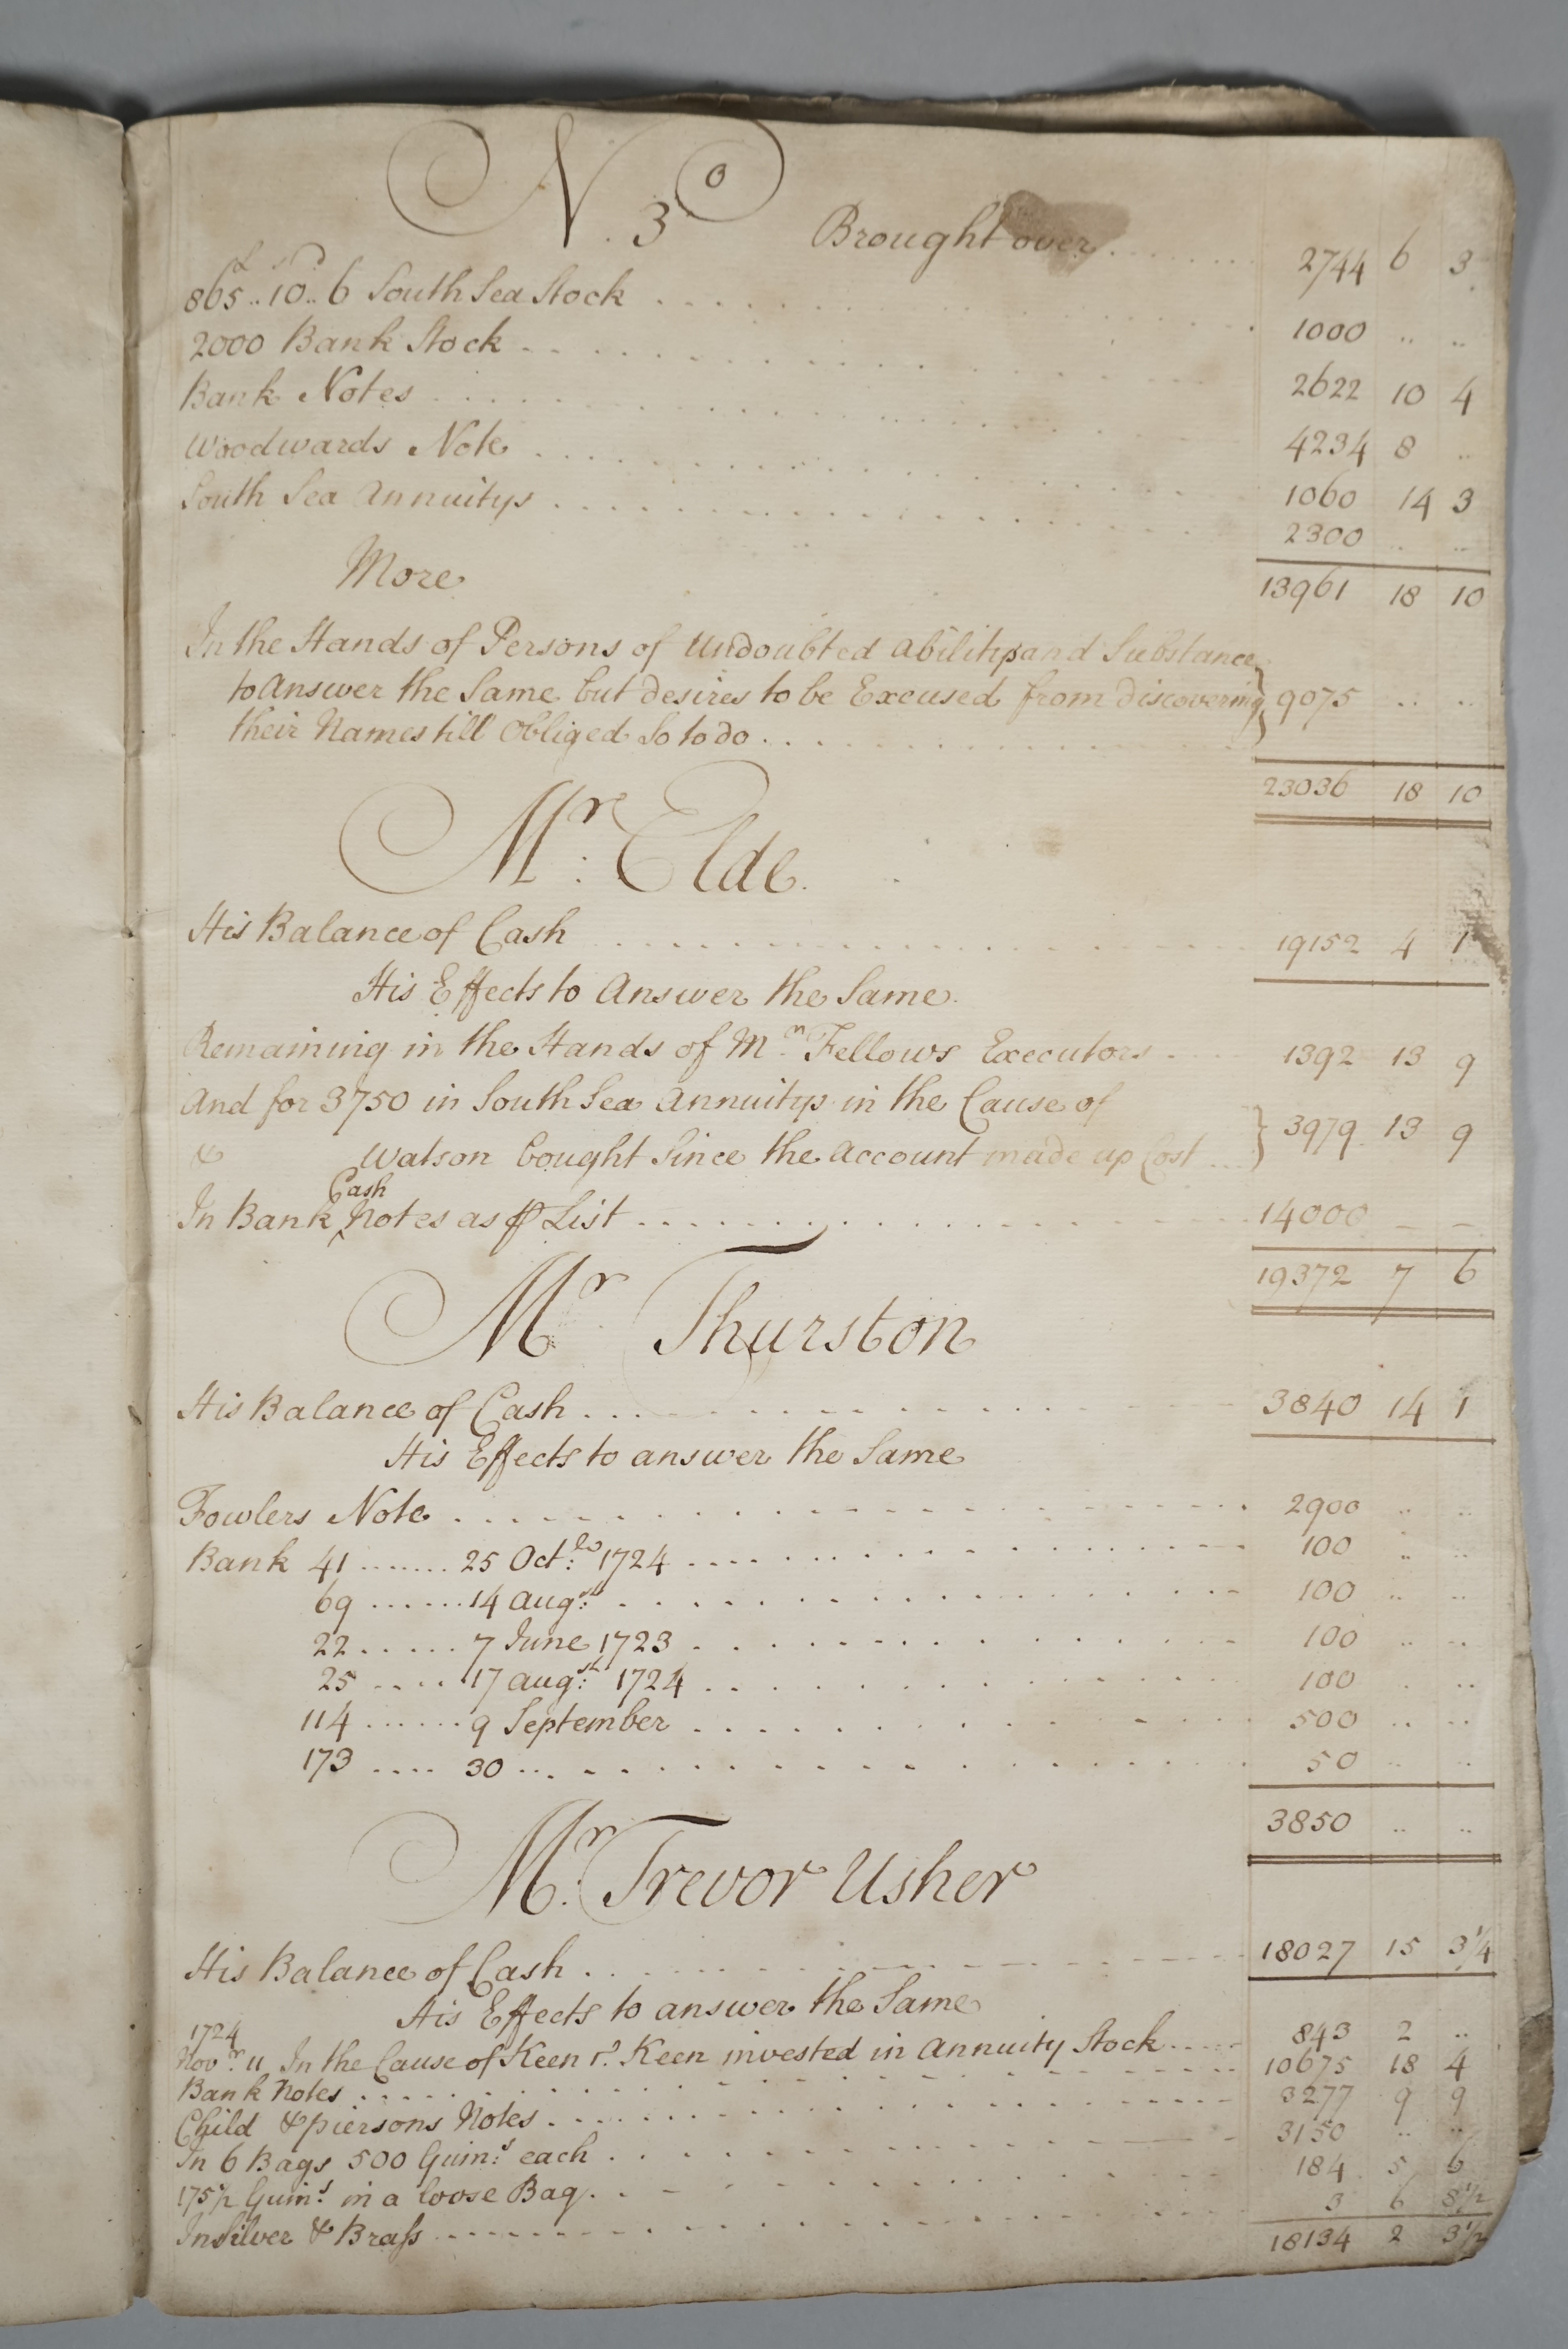 N.o 3 Brought over 2744 6 3
865£..10s..6d South Sea Stock 1000 .. ..
2000 Bank Stock 2622 10 4
Bank Notes 4234 8 ..
Woodwards Note 1060 14 3
South Sea Annuitys 2300 .. ..
13961 18 10
More
In the Hands of Persons of Undoubted ability and Substance
to Answer the Same but desires to be Excused from discovering 9075 .. ..
their Names till Obliged So to do
23036 18 10
Mr: Elde.
His Balance of Cash 19152 4 1
His Effects to Answer the Same.
Remaining in the Hands of Mr. Fellows Executors 1392 13 9
And for 3750 in South Sea Annuitys in the Cause of
& Watson bought Since the Account made up Cost 3979 13 9
Cash
In Bank ‸ Notes as ⅌ List 14000 – –
19372 7 6
Mr Thurston
His Balance of Cash 3840 14 1
His Effects to answer the Same
Fowlers Note 2900 .. ..
Bank 41 25 Oct: 1724 100 .. ..
69 14 augst: 100 .. ..
22 7 June 1723 100 .. ..
25 17 augst: 1724 100 . ..
114 9 September 500 .. ..
173 30 50 .. ..
3850 .. ..
Mr: Trevor Usher
His Balance of Cash 18027 15 3¼
His Effects to answer the Same
1724
Novr: 11 In the Cause of Keen v. Keen invested in Annuity Stock 843 2 ..
Bank Notes 10675 18 4
Child & piersons Notes 3277 9 9
In 6 Bags 500 Guin:s each 3150 .. ..
175½ Guin:s in a loose Bag 184 5 6
In Silver & Brass 3 6 8½
18134 2 3½